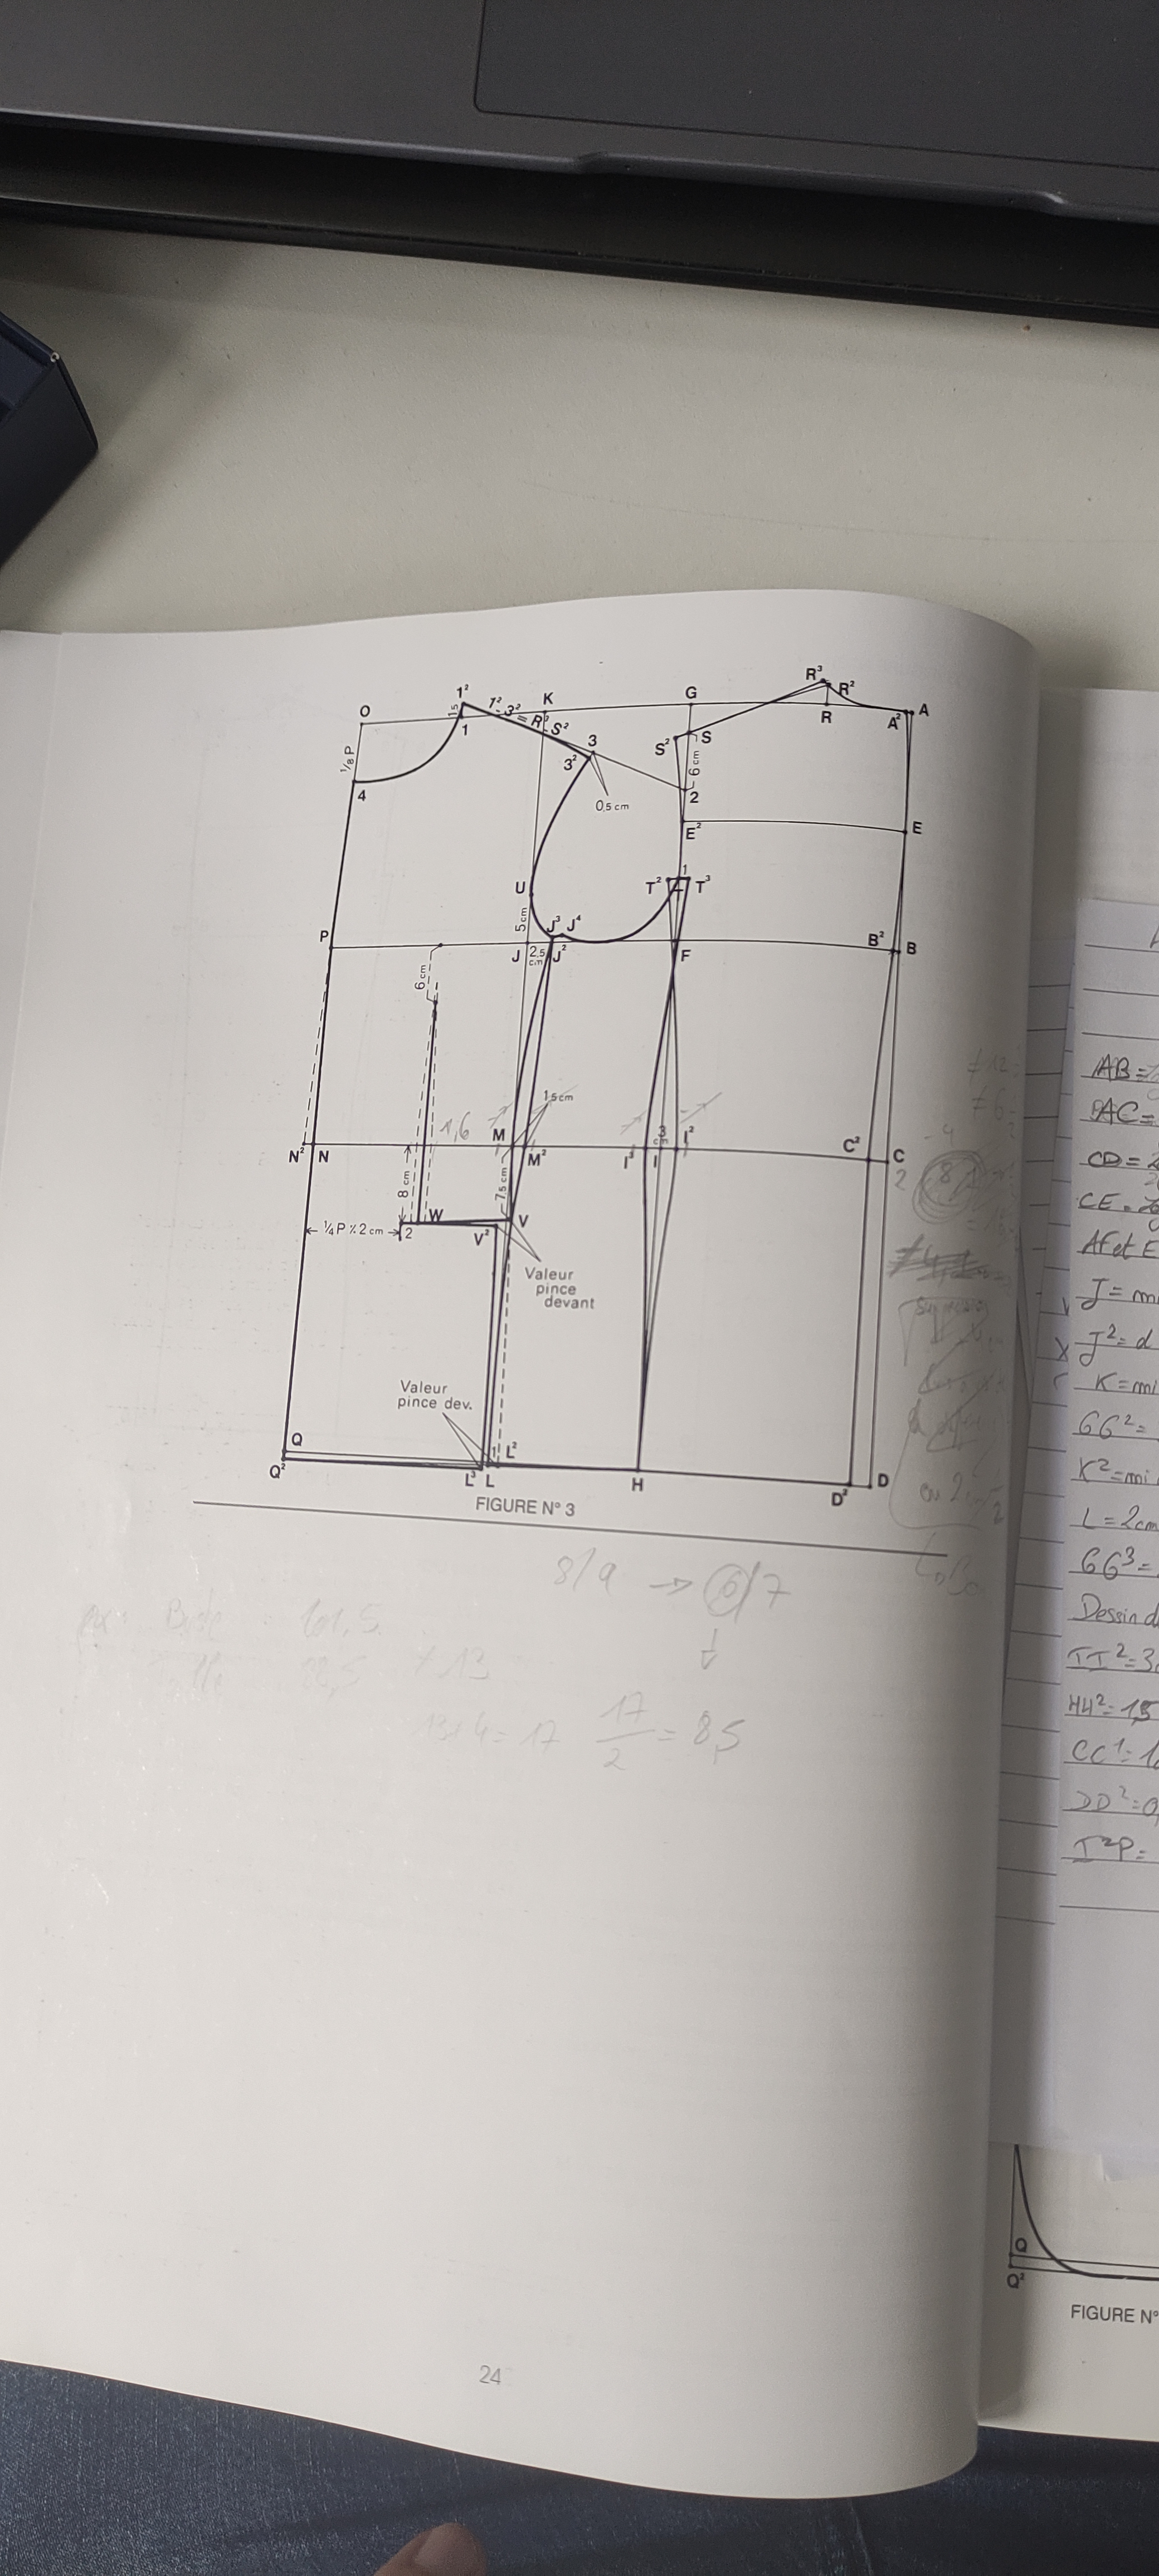 R³
R²
1²
K
G
A
O
1,5
1²-3² = R³-S²
R
A²
1
S²
S
3
3²
6 cm
1/8 P
4
0,5 cm
2
E²
E
1
U
T²
T
T³
5 cm
J³ J⁴
P
B²
B
J
2,5 cm
J²
F
6 cm
1,5 cm
1,6
M
3 cm
I²
C²
C
N²
N
M²
I³
I
2
8 cm
7,5 cm
W
V
1/4 P % 2 cm
2
V²
Valeur
pince
devant
Valeur
pince dev.
Q
1
L²
Q²
L³
L
H
D²
D
FIGURE N° 3
8/9 → 6/7
101,5
13+4 = 17
17/2 = 8,5
24
AB =
AC =
CD = 2
CE =
AF et E
J = m
J² = d
K = mi
GG² =
K² = mi
L = 2cm
GG³ =
Dessin d
II² = 3,
HH² = 1,5
CC¹ = 1
DD² = 0,
I²P =
Q
Q²
FIGURE N°